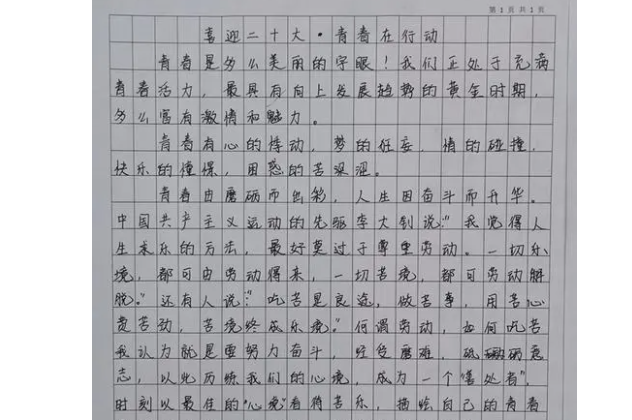 第 1 页 共 1 页
喜迎二十大·青春在行动
青春是多么美丽的字眼！我们正处于充满
青春活力，最具有向上发展趋势的黄金时期，
多么富有激情和魅力。
青春有心的悸动，梦的狂妄，情的碰撞，
快乐的憧憬，困惑的苦涩涩。
青春由磨砺而出彩，人生因奋斗而升华。
中国共产主义运动的先驱李大钊说："我觉得人
生求乐的方法，最好莫过于尊重劳动。一切乐
境，都可由劳动得来，一切苦境，都可劳动解
脱。"还有人说："吃苦是良途，做苦事，用苦心
费苦劲，苦境终成乐境。"何谓劳动，如何吃苦
我认为就是要努力奋斗，经受磨难，砥砺意
志，以此历练我们的心境，成为一个"善处者"，
时刻以最佳的"心境"看待苦乐，描绘自己的青春